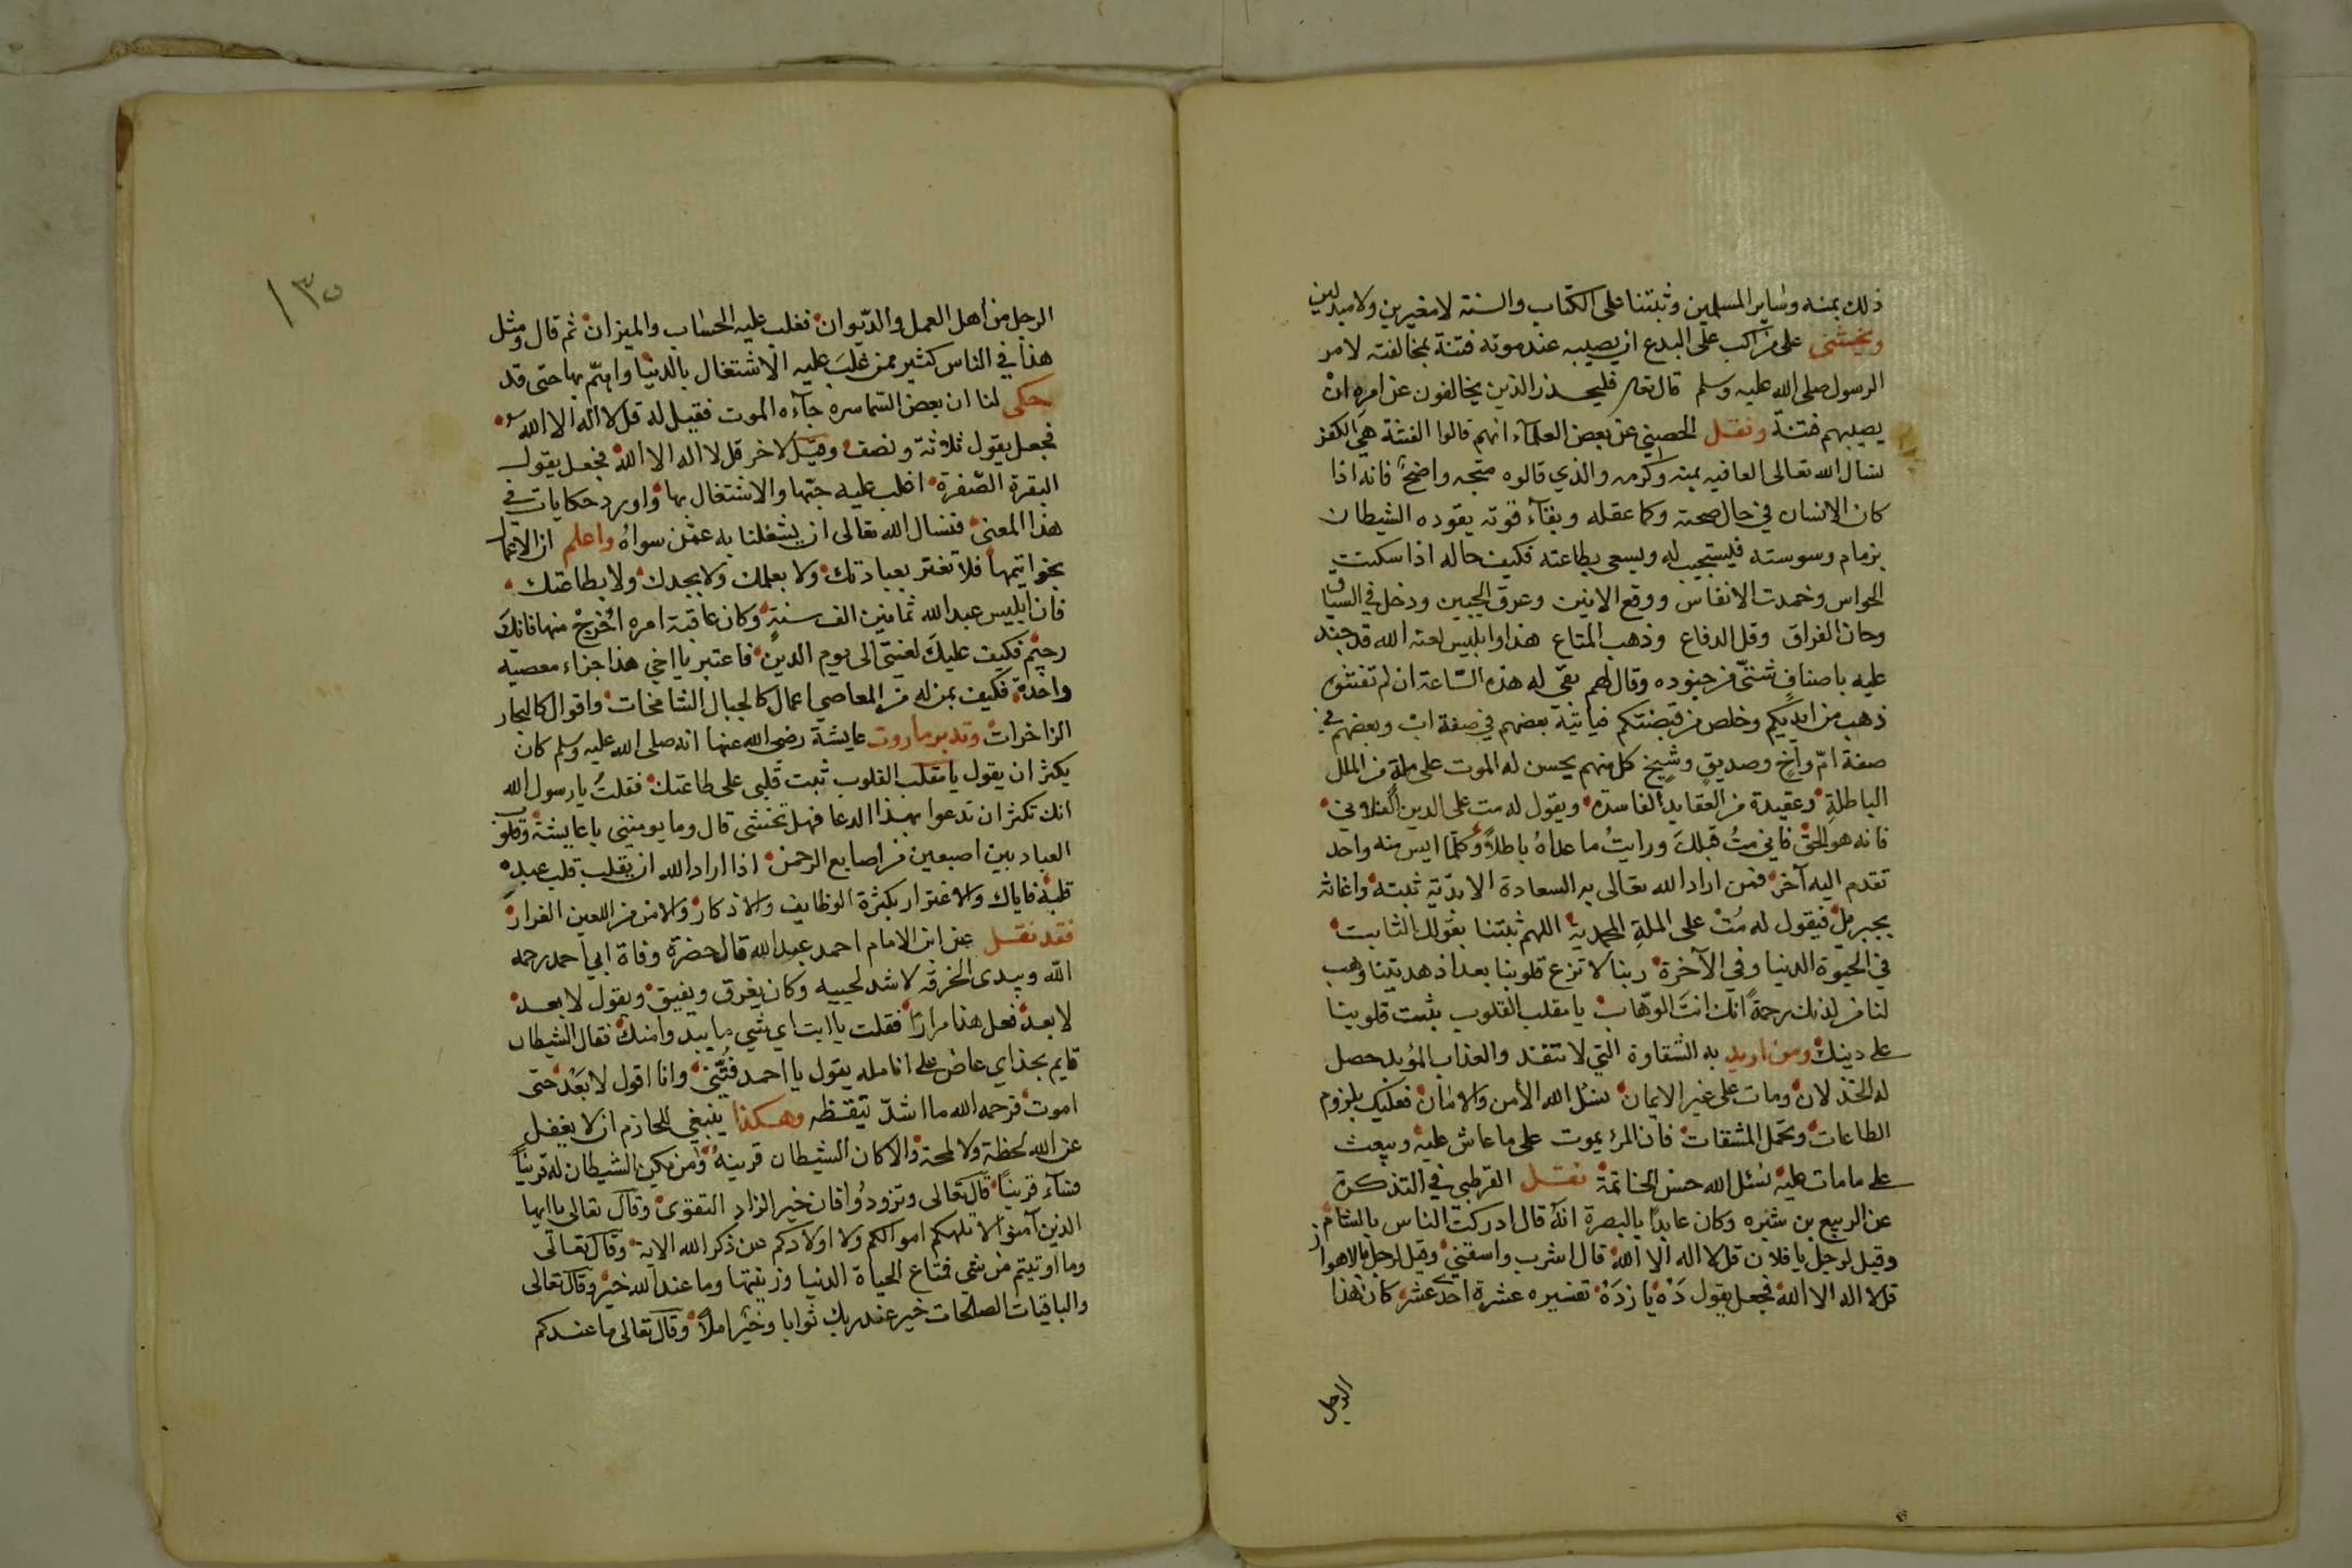 ذلك بمنه وساير المسلمين وثبتنا على الكتاب والسنة لا مغيرين ولا مبدلين
ويخشى على من اكب على البدع ان يصيبه عند موته فتنة بمخالفته لامر
الرسول صلى الله عليه وسلم قال تعا فليحذر الذين يخالفون عن امره ان
يصيبهم فتنة ونقل الحصيني عن بعض العلمآء انهم قالوا الفتنة هي الكفر
نسال الله تعالى العافيه بمنه وكرمه والذي قالوه متجه واضح فانه اذا
كان الانسان في حال صحته وكما عقله وبقآء قوته يقوده الشيطان
بزمام وسوسته فيستجيب له ويسعى بطاعته فكيف حاله اذا سكنت
الحواس وخمدت الانفاس ووقع الانين وعرق الجبين ودخل في السياق
وحان الفراق وقل الدفاع وذهب المتاع هذا وابليس لعنه الله قد جند
عليه باصناف شتى من جنوده وقال لهم بقي له هذه الساعة ان لم تفتنوه
ذهب من ايديكم وخلص من قبضتكم فياتيه بعضهم في صفة اب وبعضهم في
صفة ام واخ وصديق وشيخ كل منهم يحسن له الموت على ملة من الملل
الباطلة وعقيدة من العقايد الفاسدة ويقول له مت على الدين الفلاني
فانه هو الحق فاني مت قبلك ورايت ما عداه باطلا وكلما ايس منه واحد
تقدم اليه آخر فمن اراد الله تعالى به السعادة الابدية ثبته واغاثه
بجبريل فيقول له مت على الملة المحمدية اللهم ثبتنا بقولك الثابت
في الحيوة الدنيا وفي الآخرة ربنا لا تزغ قلوبنا بعد اذ هديتنا وهب
لنا من لدنك رحمة انك انت الوهاب يا مقلب القلوب ثبت قلوبنا
على دينك ومن اريد به الشقاوة التي لا تنفد والعذاب المؤبد حصل
له الخذلان ومات على غير الايمان نسئل الله الأمن والامان فعليك بلزوم
الطاعات وتحمل المشقات فان المرء يموت على ما عاش عليه ويبعث
على ما مات عليه نسئل الله حسن الخاتمة نقل القرطبي في التذكرة
عن الربيع بن شبره وكان عابدا بالبصرة انه قال ادركت الناس بالشام
وقيل لرجل يا فلان قل لا اله الا الله قال اشرب واسقني وقيل لرجل بالاهواز
قل لا اله الا الله فجعل يقول ده يازده تفسيره عشرة احد عشر كان هذا
الرجل
١٣٥
الرجل من اهل العمل والديوان فغلب عليه الحساب والميزان ثم قال ومثل
هذا في الناس كثير ممن غلب عليه الاشتغال بالدنيا واهتم بها حتى قد
حكى لنا ان بعض السماسره جآءه الموت فقيل له قل لا اله الا الله
فجعل يقول ثلاثة ونصف وقيل لاخر قل لا اله الا الله فجعل يقول
البقرة الصفرة اغلب عليه حبها والاشتغال بها واورد حكايات في
هذا المعنى فنسال الله تعالى ان يشغلنا به عمن سواه واعلم ان الاعمال
بخواتيمها فلا تغتر بعبادتك ولا بعلمك ولا بجدك ولا بطاعتك
فان ابليس عبد الله ثمانين الف سنة وكان عاقبة امره اخرج منها فانك
رجيم فكيف عليك لعنتي الى يوم الدين فاعتبر يا اخي هذا جزاء معصية
واحدة فكيف بمن له من المعاصي اعمال كالجبال الشامخات واقوال كالبحار
الزاخرات وتدبر ما روت عايشة رضي الله عنها انه صلى الله عليه وسلم كان
يكثر ان يقول يا مقلب القلوب ثبت قلبي على طاعتك فقلت يا رسول الله
انك تكثر ان تدعوا بهذا الدعا فهل تخشى قال وما يومنني يا عايشة وقلوب
العباد بين اصبعين من اصابع الرحمن اذا اراد الله ان يقلب قلب عبده
قلبه فاياك والاغترار بكثرة الوظايف والاذكار والامن من اللعين الغرار
فقد نقل عن ابن الامام احمد عبد الله قال حضرة وفاة ابي احمد رحمه
الله وبيدى الخرقه لاشد لحييه وكان يغرق ويفيق ويقول لا بعد
لا بعد فعل هذا مرارا فقلت يا ابت اي شي ما يبدوا منك فقال الشيطان
قايم بحذاي عاض على انامله يقول يا احمد فتني وانا اقول لا بعد حتى
اموت فرحمه الله ما اشد تيقظه وهكذا ينبغي للحازم ان لا يغفل
عن الله لحظة ولا لمحة والا كان الشيطان قرينه ومن يكن الشيطان له قرينا
فسآء قرينا قال تعالى وتزودوا فان خير الزاد التقوى وقال تعالى يا ايها
الذين آمنوا لا تلهكم اموالكم ولا اولادكم عن ذكر الله الاية وقال تعالى
وما اوتيتم من شي فمتاع الحياة الدنيا وزينتها وما عند الله خير وقال تعالى
والباقيات الصلحات خير عند ربك ثوابا وخير املا وقال تعالى ما عندكم